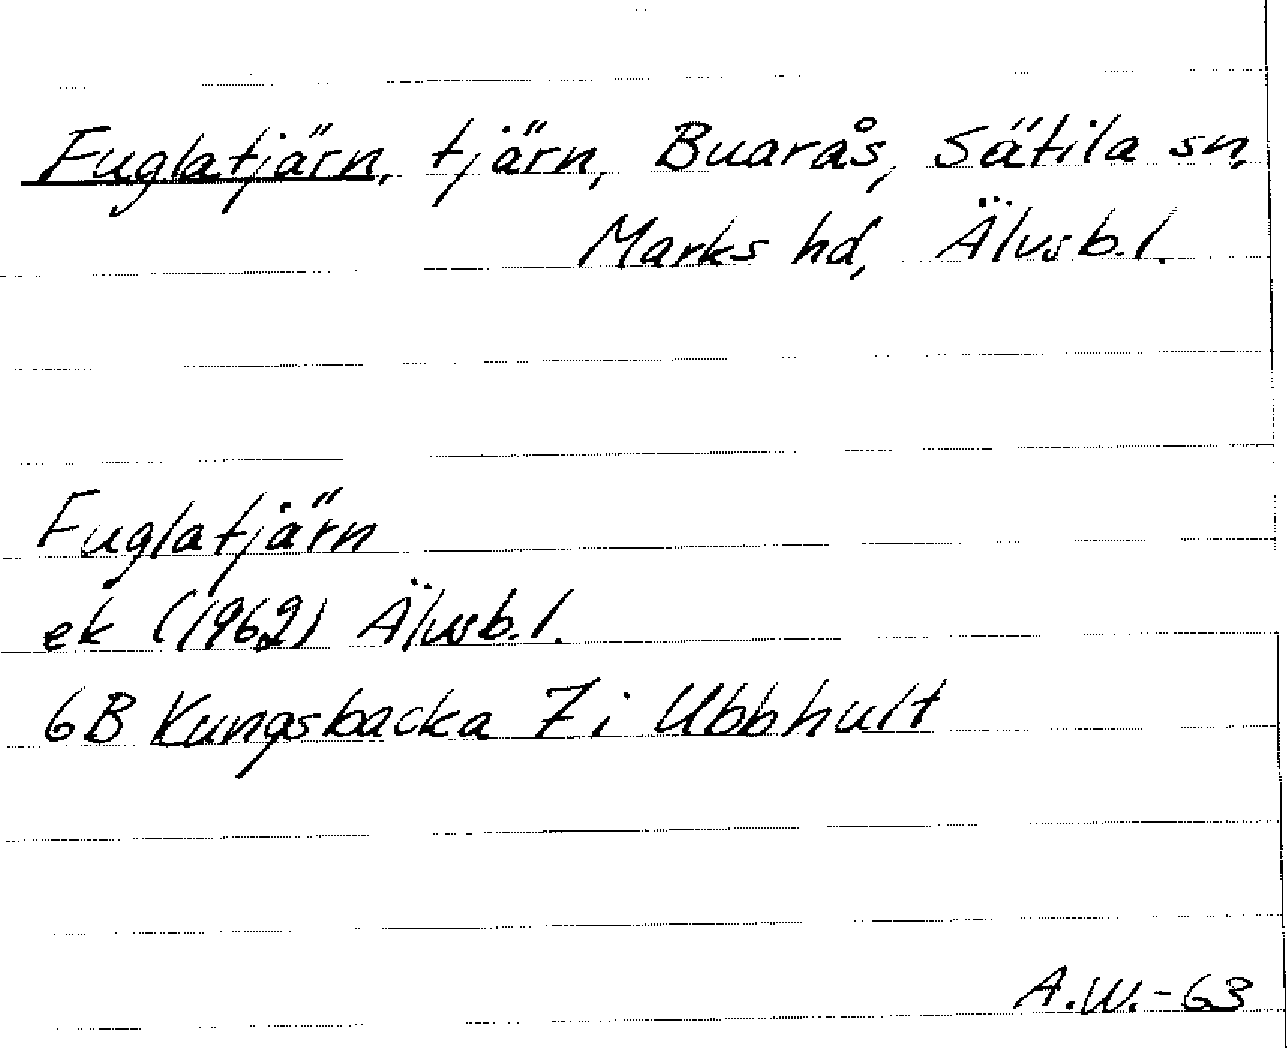 Fuglatjärn, tjärn, Buarås, Sätila sn,
Marks hd, Älvsb.l.
Fuglatjärn
ek (1962) Älvsb.l.
6B Kungsbacka 7i Ubbhult
A.W.-63